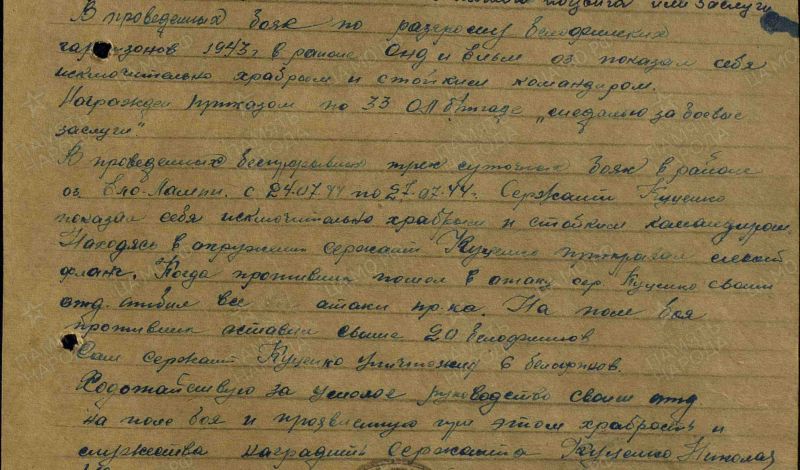 подвига или заслуг
В проведенных боях по разгрому белофинских
гарнизонов 1943 г в районе Онд и вным оз. показал себя
исключительно храбрым и стойким командиром.
Награжден приказом по 33 ОЛ бригаде "медалью за боевые
заслуги"
В проведенных беспрерывных трех суточных боях в районе
оз. Лампи. с 24.07.44 по 27.07.44 г. Сержант Куценко
показал себя исключительно храбрым и стойким командиром
Находясь в окружении сержант Куценко прикрывал левый
фланг. Когда противник пошол в атаку сер. Куценко своим
отд. отбил все атаки пр-ка. На поле боя
противник оставил свыше 20 белофинов
Сам сержант Куценко уничтожил 6 белофинов.
Ходотайствую за умелое руководство своим отд
на поле боя и проявленную при этом храбрость и
мужества наградить сержанта Куценко Николая